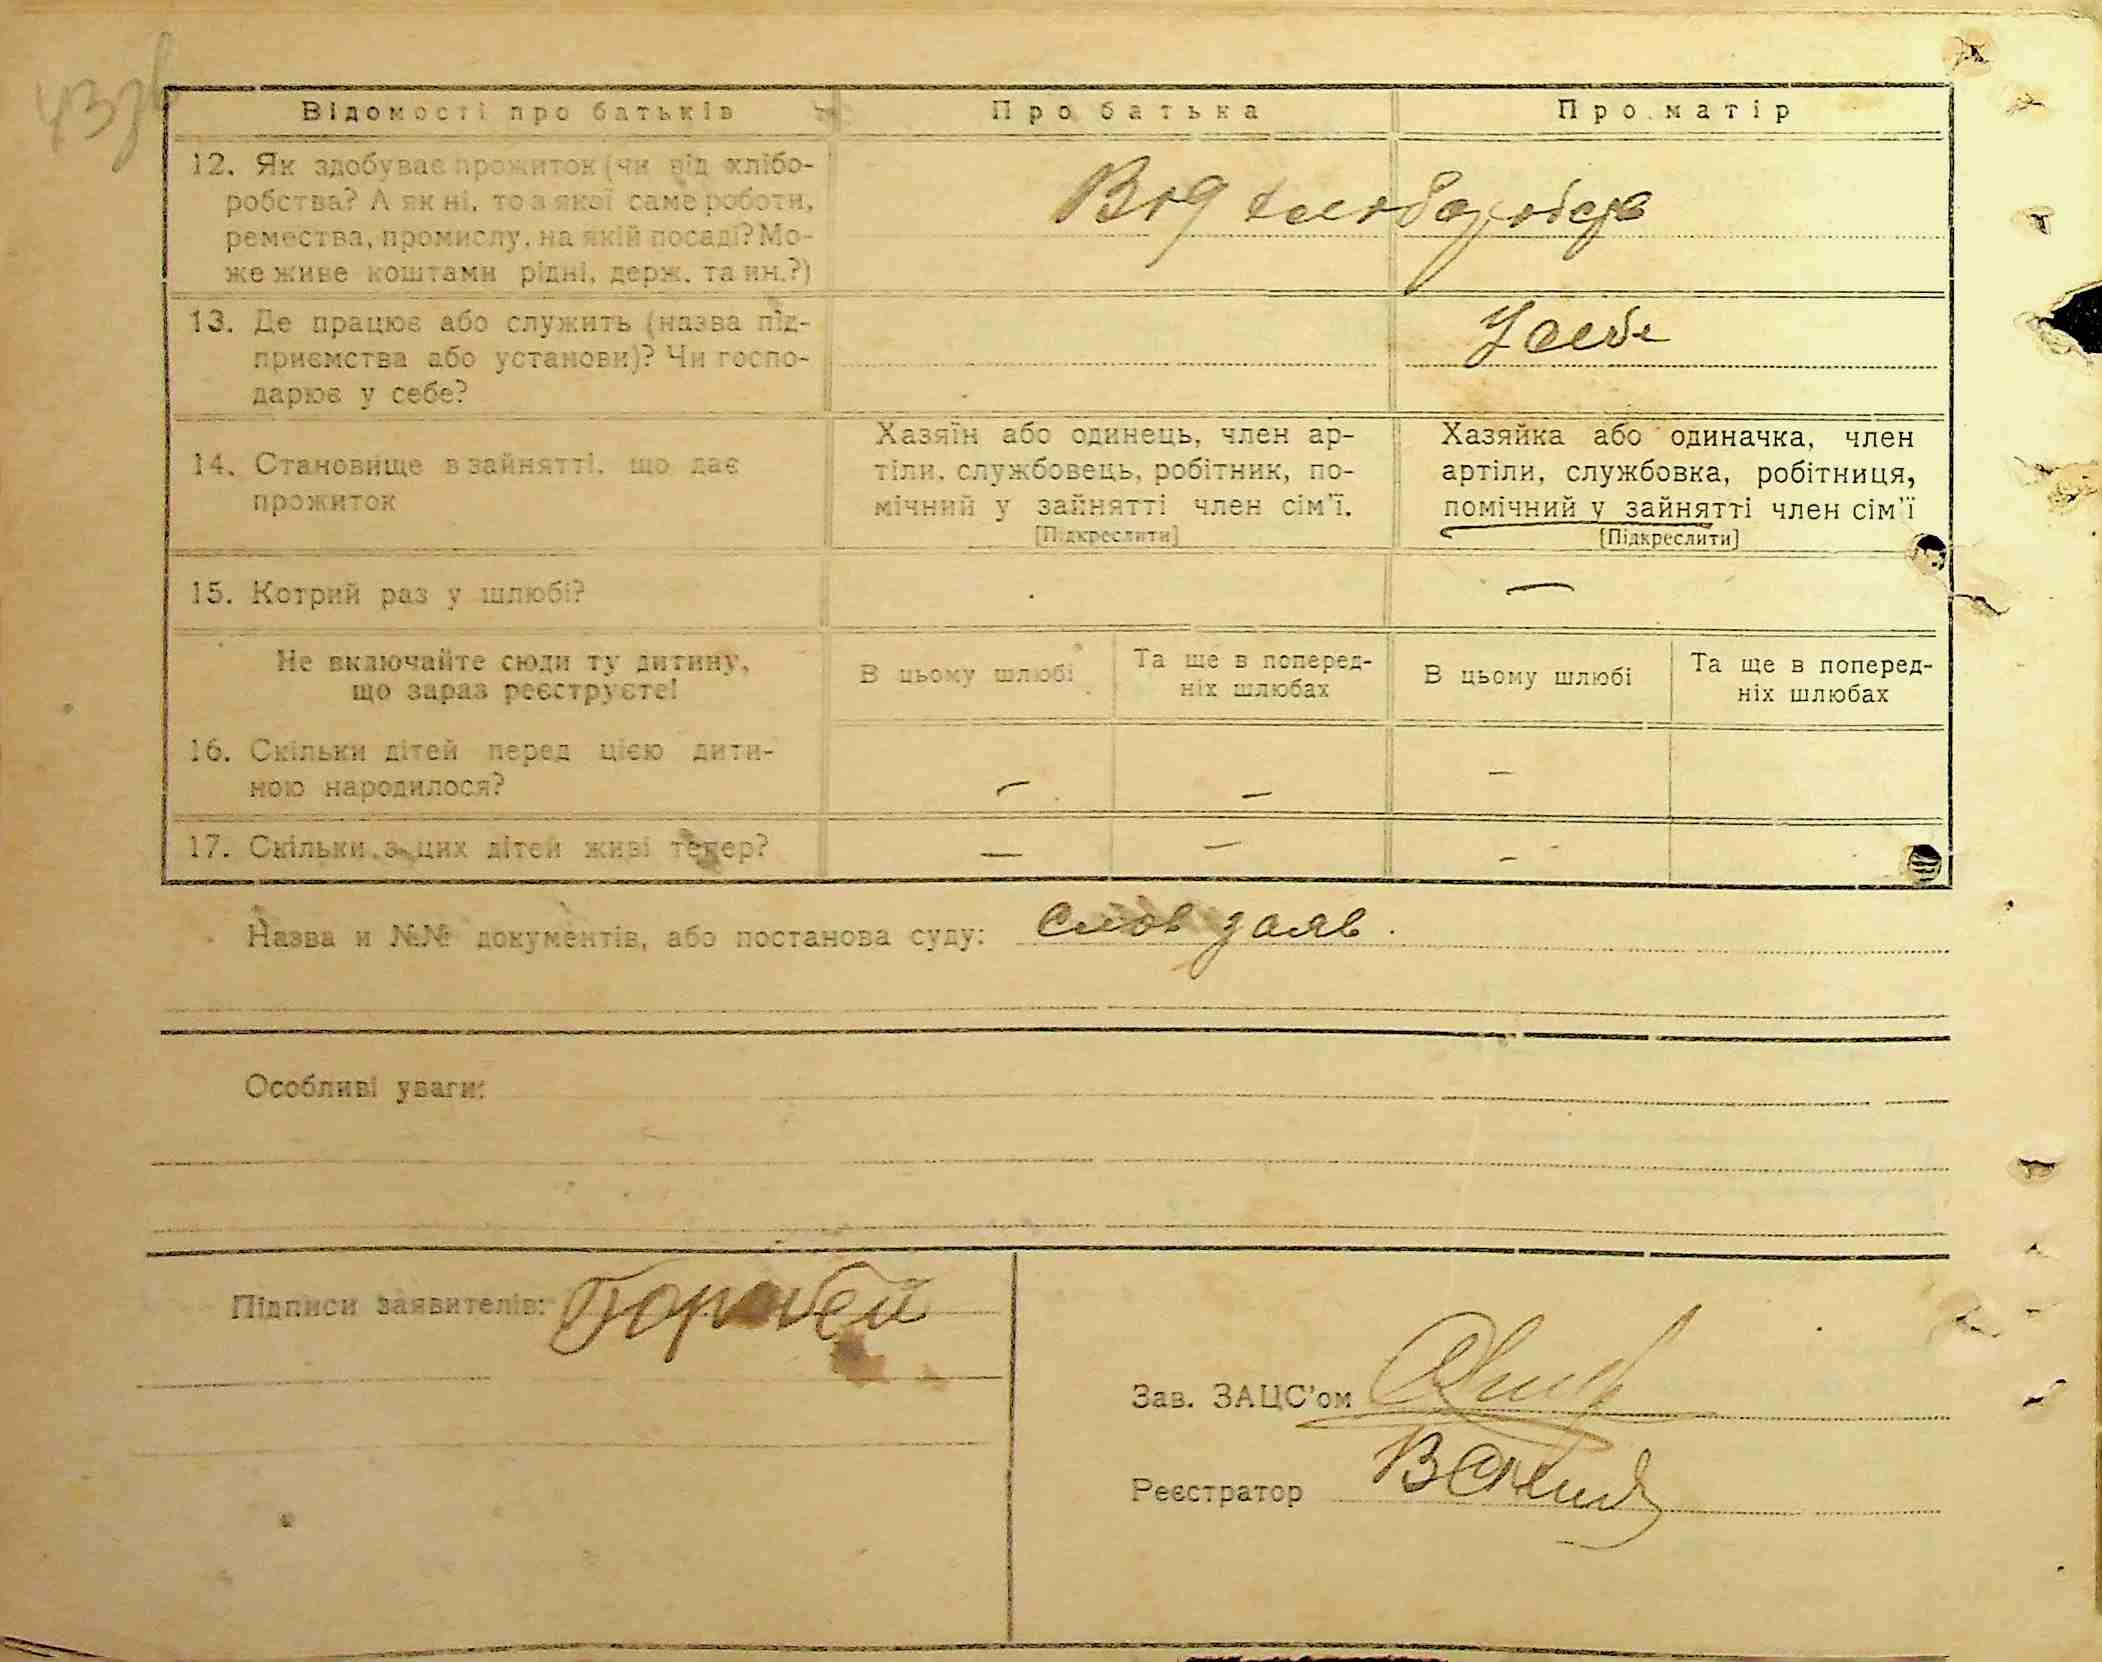 43зв
Відомості про батьків Про батька Про матір
12. Як здобуває прожиток (чи від хлібо-
робства? А як ні, то з якої саме роботи,
ремества, промислу, на якій посаді? Мо-
же живе коштами рідні, держ. та ин.?)
Від хліборобства
13. Де працює або служить (назва під-
приємства або установи)? Чи госпо-
дарює у себе?
У себе
14. Становище в зайнятті, що дає
прожиток
Хазяїн або одинець, член ар-
тіли, службовець, робітник, по-
мічний у зайнятті член сім'ї.
[Підкреслити]
Хазяйка або одиначка, член
артіли, службовка, робітниця,
помічний у зайнятті член сім'ї
[Підкреслити]
15. Котрий раз у шлюбі? —
Не включайте сюди ту дитину,
що зараз реєструєте!
В цьому шлюбі
Та ще в поперед-
ніх шлюбах
В цьому шлюбі
Та ще в поперед-
ніх шлюбах
16. Скільки дітей перед цією дити-
ною народилося?
— — —
17. Скільки з цих дітей живі тепер? — — —
Назва и №№ документів, або постанова суду: Слов заяв.
Особливі уваги:
Підписи заявителів:
Зав. ЗАЦС'ом
Реєстратор